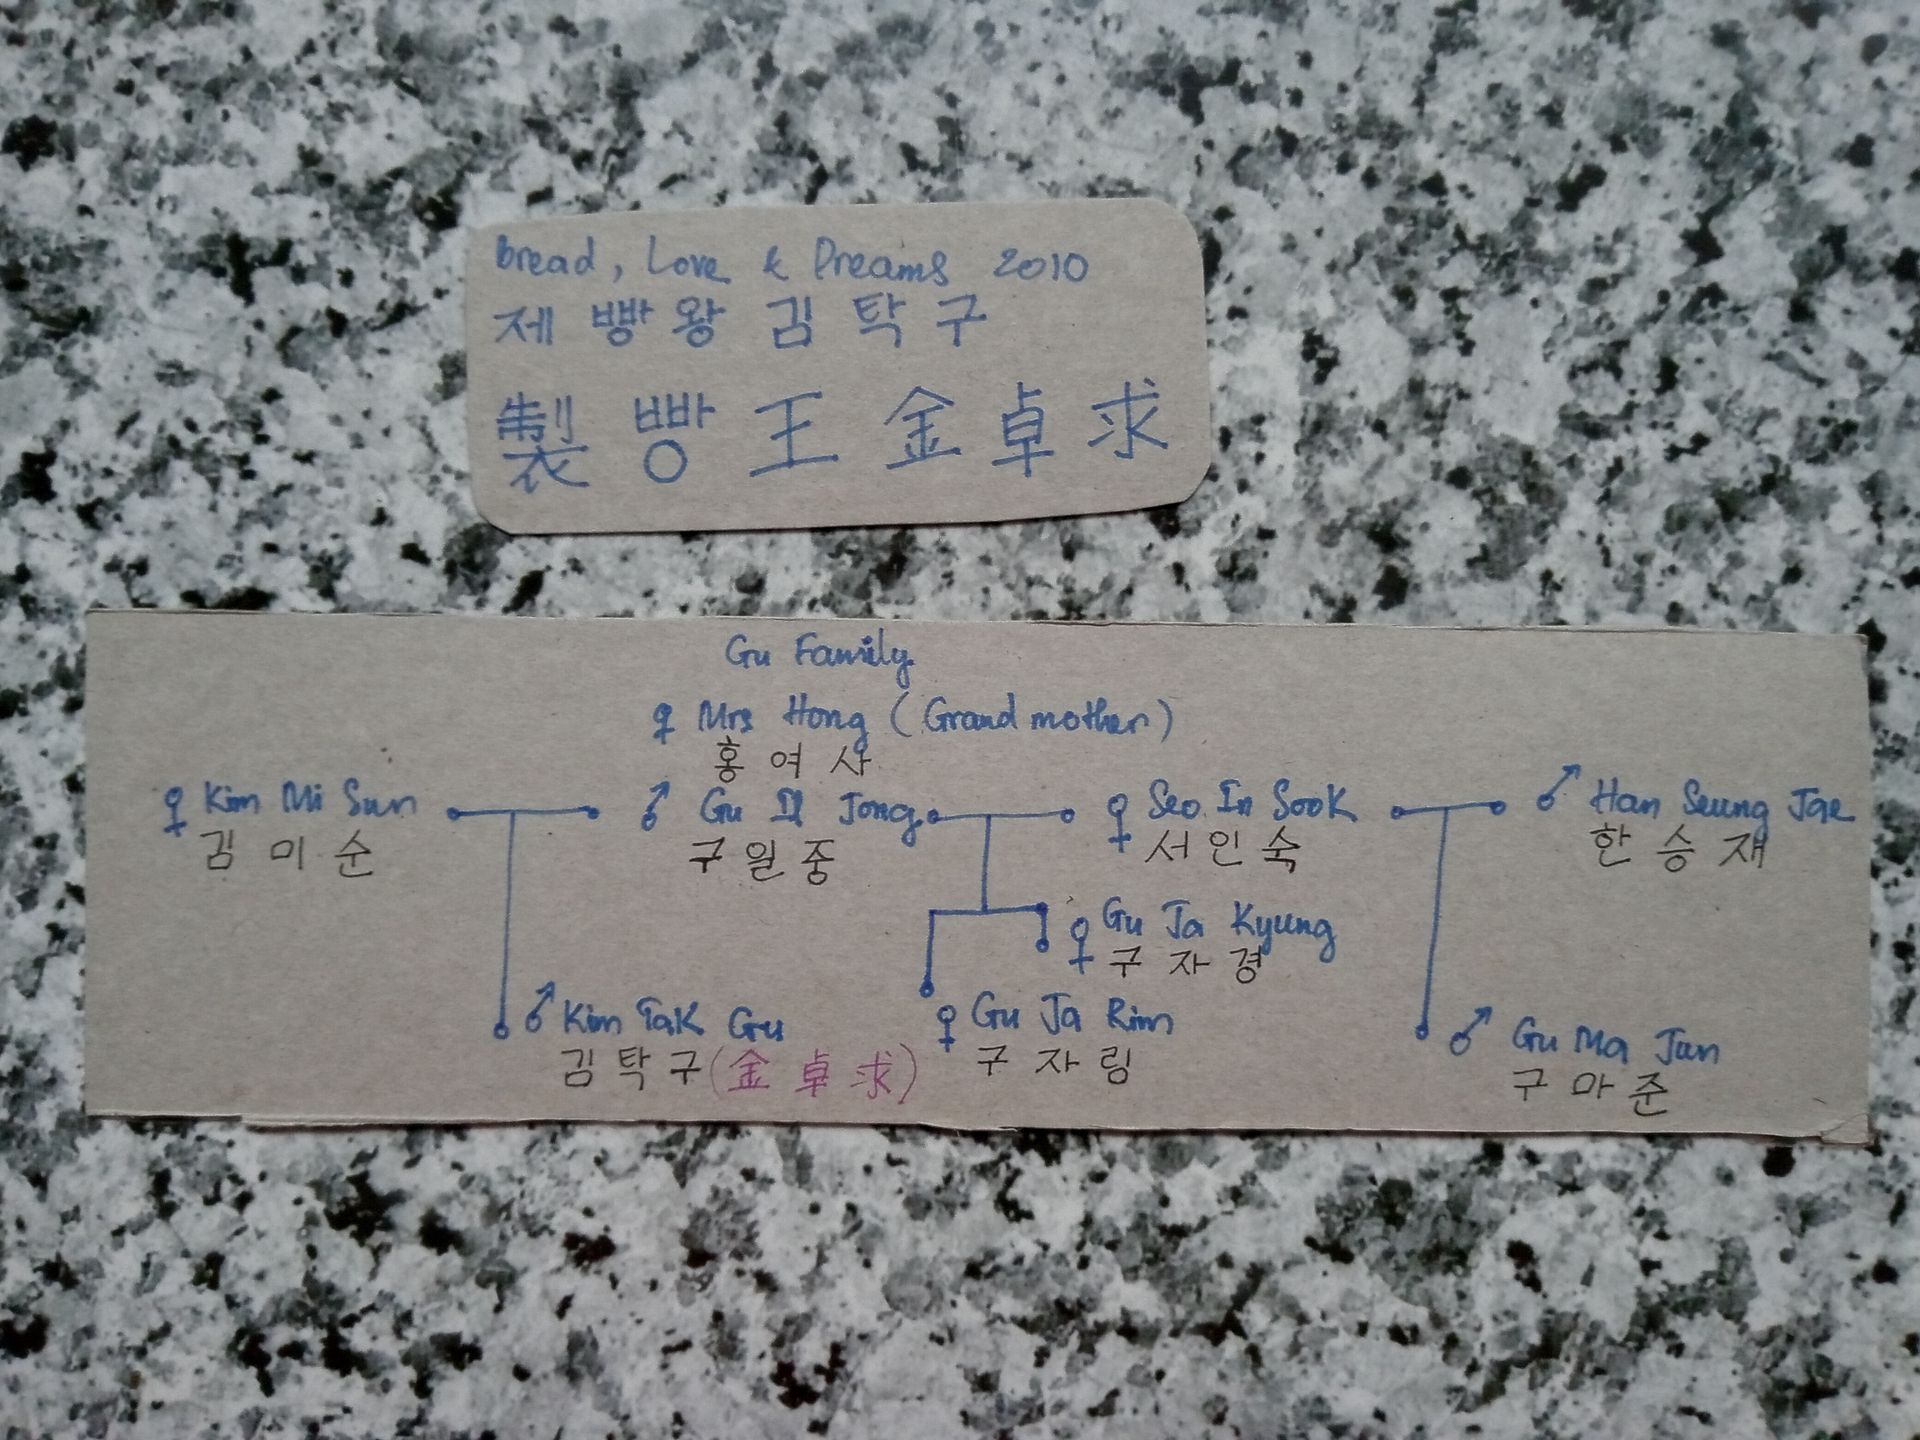 bread, Love & Dreams 2010
제 빵 왕 김 탁 구
製 빵 王 金 卓 求
Gu Family
♀ Mrs Hong (Grand mother)
홍 여 사
♀ Kim Mi Sun
김 미 순
♂ Gu Il Jong
구 일 중
♀ Seo In Sook
서 인 숙
♂ Han Seung Jae
한 승 재
♀ Gu Ja Kyung
구 자 경
♂ Kim Tak Gu
김 탁 구 (金 卓 求)
♀ Gu Ja Rim
구 자 링
♂ Gu Ma Jun
구 마 준